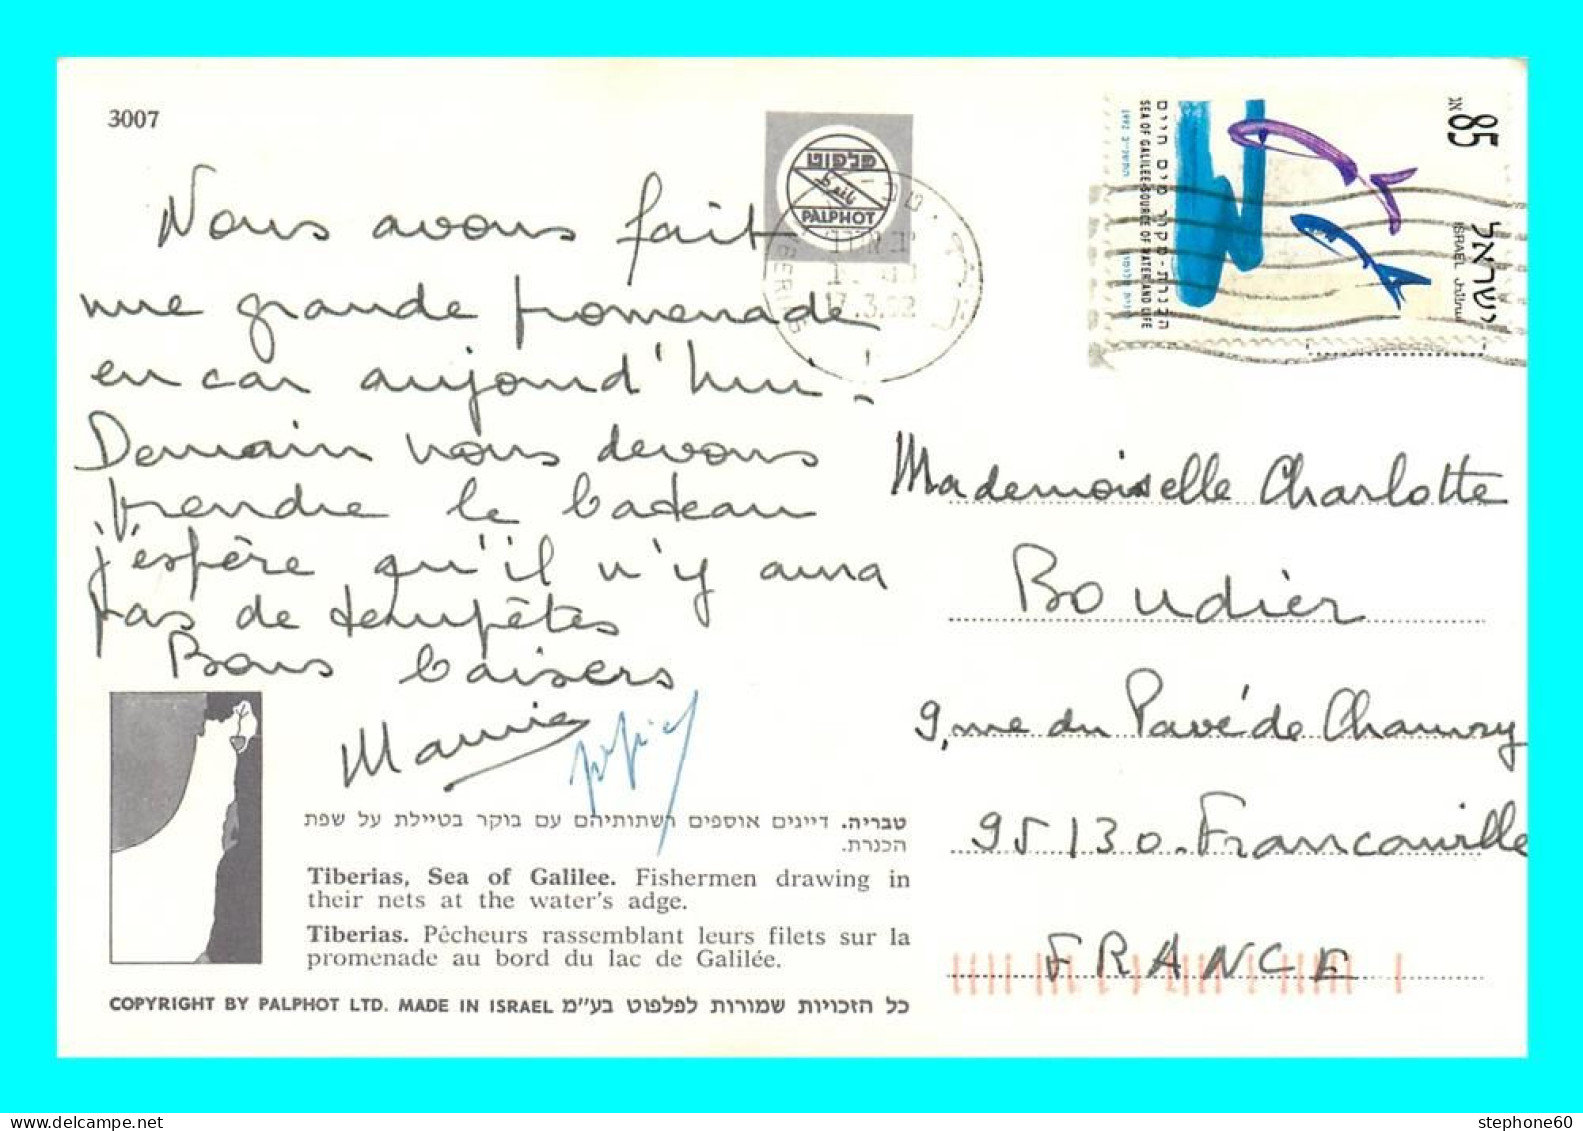 3007
פלפוט
PALPHOT
17.3.92
85
ישראל
ISRAEL
SEA OF GALILEE-SOURCE OF WATER AND LIFE
הכנרת - מקור מים חיים
1992
Nous avons fait
une grande promenade
en car aujourd'hui.
Demain nous devons
prendre le bateau
j'espère qu'il n'y aura
pas de tempêtes
Bons baisers
Mamie papie
Mademoiselle Charlotte
Boudier
9, rue du Pavé de Chauvry
95130. Franconville
FRANCE
טבריה. דייגים אוספים רשתותיהם עם בוקר בטיילת על שפת
הכנרת.
Tiberias, Sea of Galilee. Fishermen drawing in
their nets at the water's adge.
Tiberias. Pêcheurs rassemblant leurs filets sur la
promenade au bord du lac de Galilée.
COPYRIGHT BY PALPHOT LTD. MADE IN ISRAEL כל הזכויות שמורות לפלפוט בע"מ
stephone60